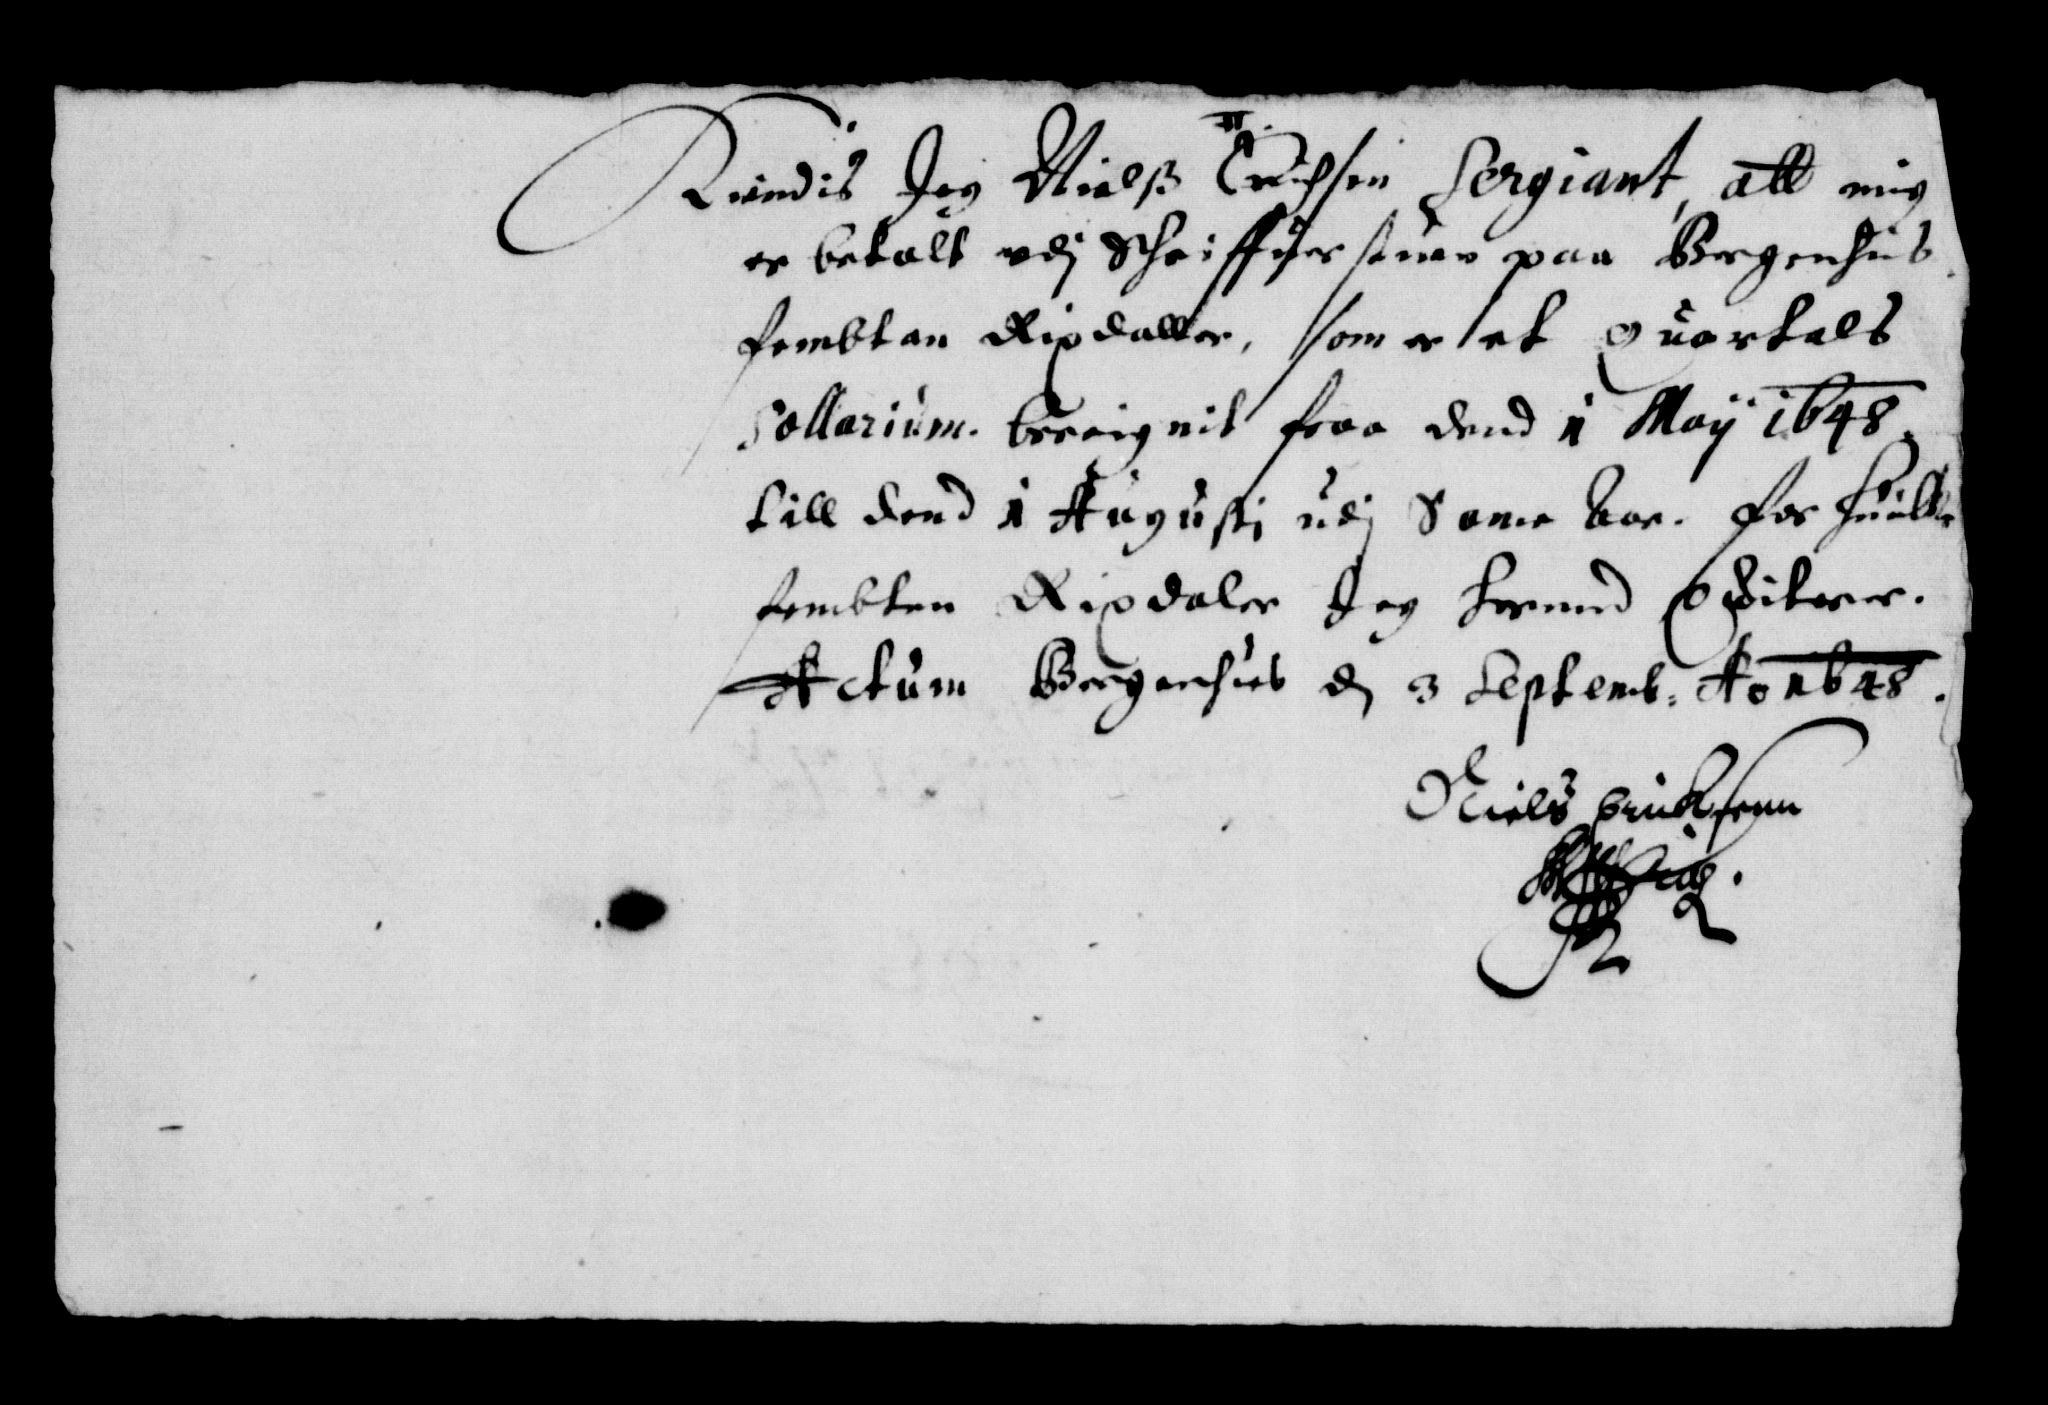 Kiendis Jeg Nielß Erichsen Sergiant, att mig
er betalt udj Schriffuerstuen paa Bergenhus
fembtan Rixdaller, som er et Quartals
Sollarium. beregnit fraa dend 1 Maij 1648
till dend 1 Augustj udj Same Aar. for huilke
fembten Rixdaler Jeg hermed Qviterer.
Actum Bergenhus dn 3 Septemb: Ao 1648.
Niels Erickssenn